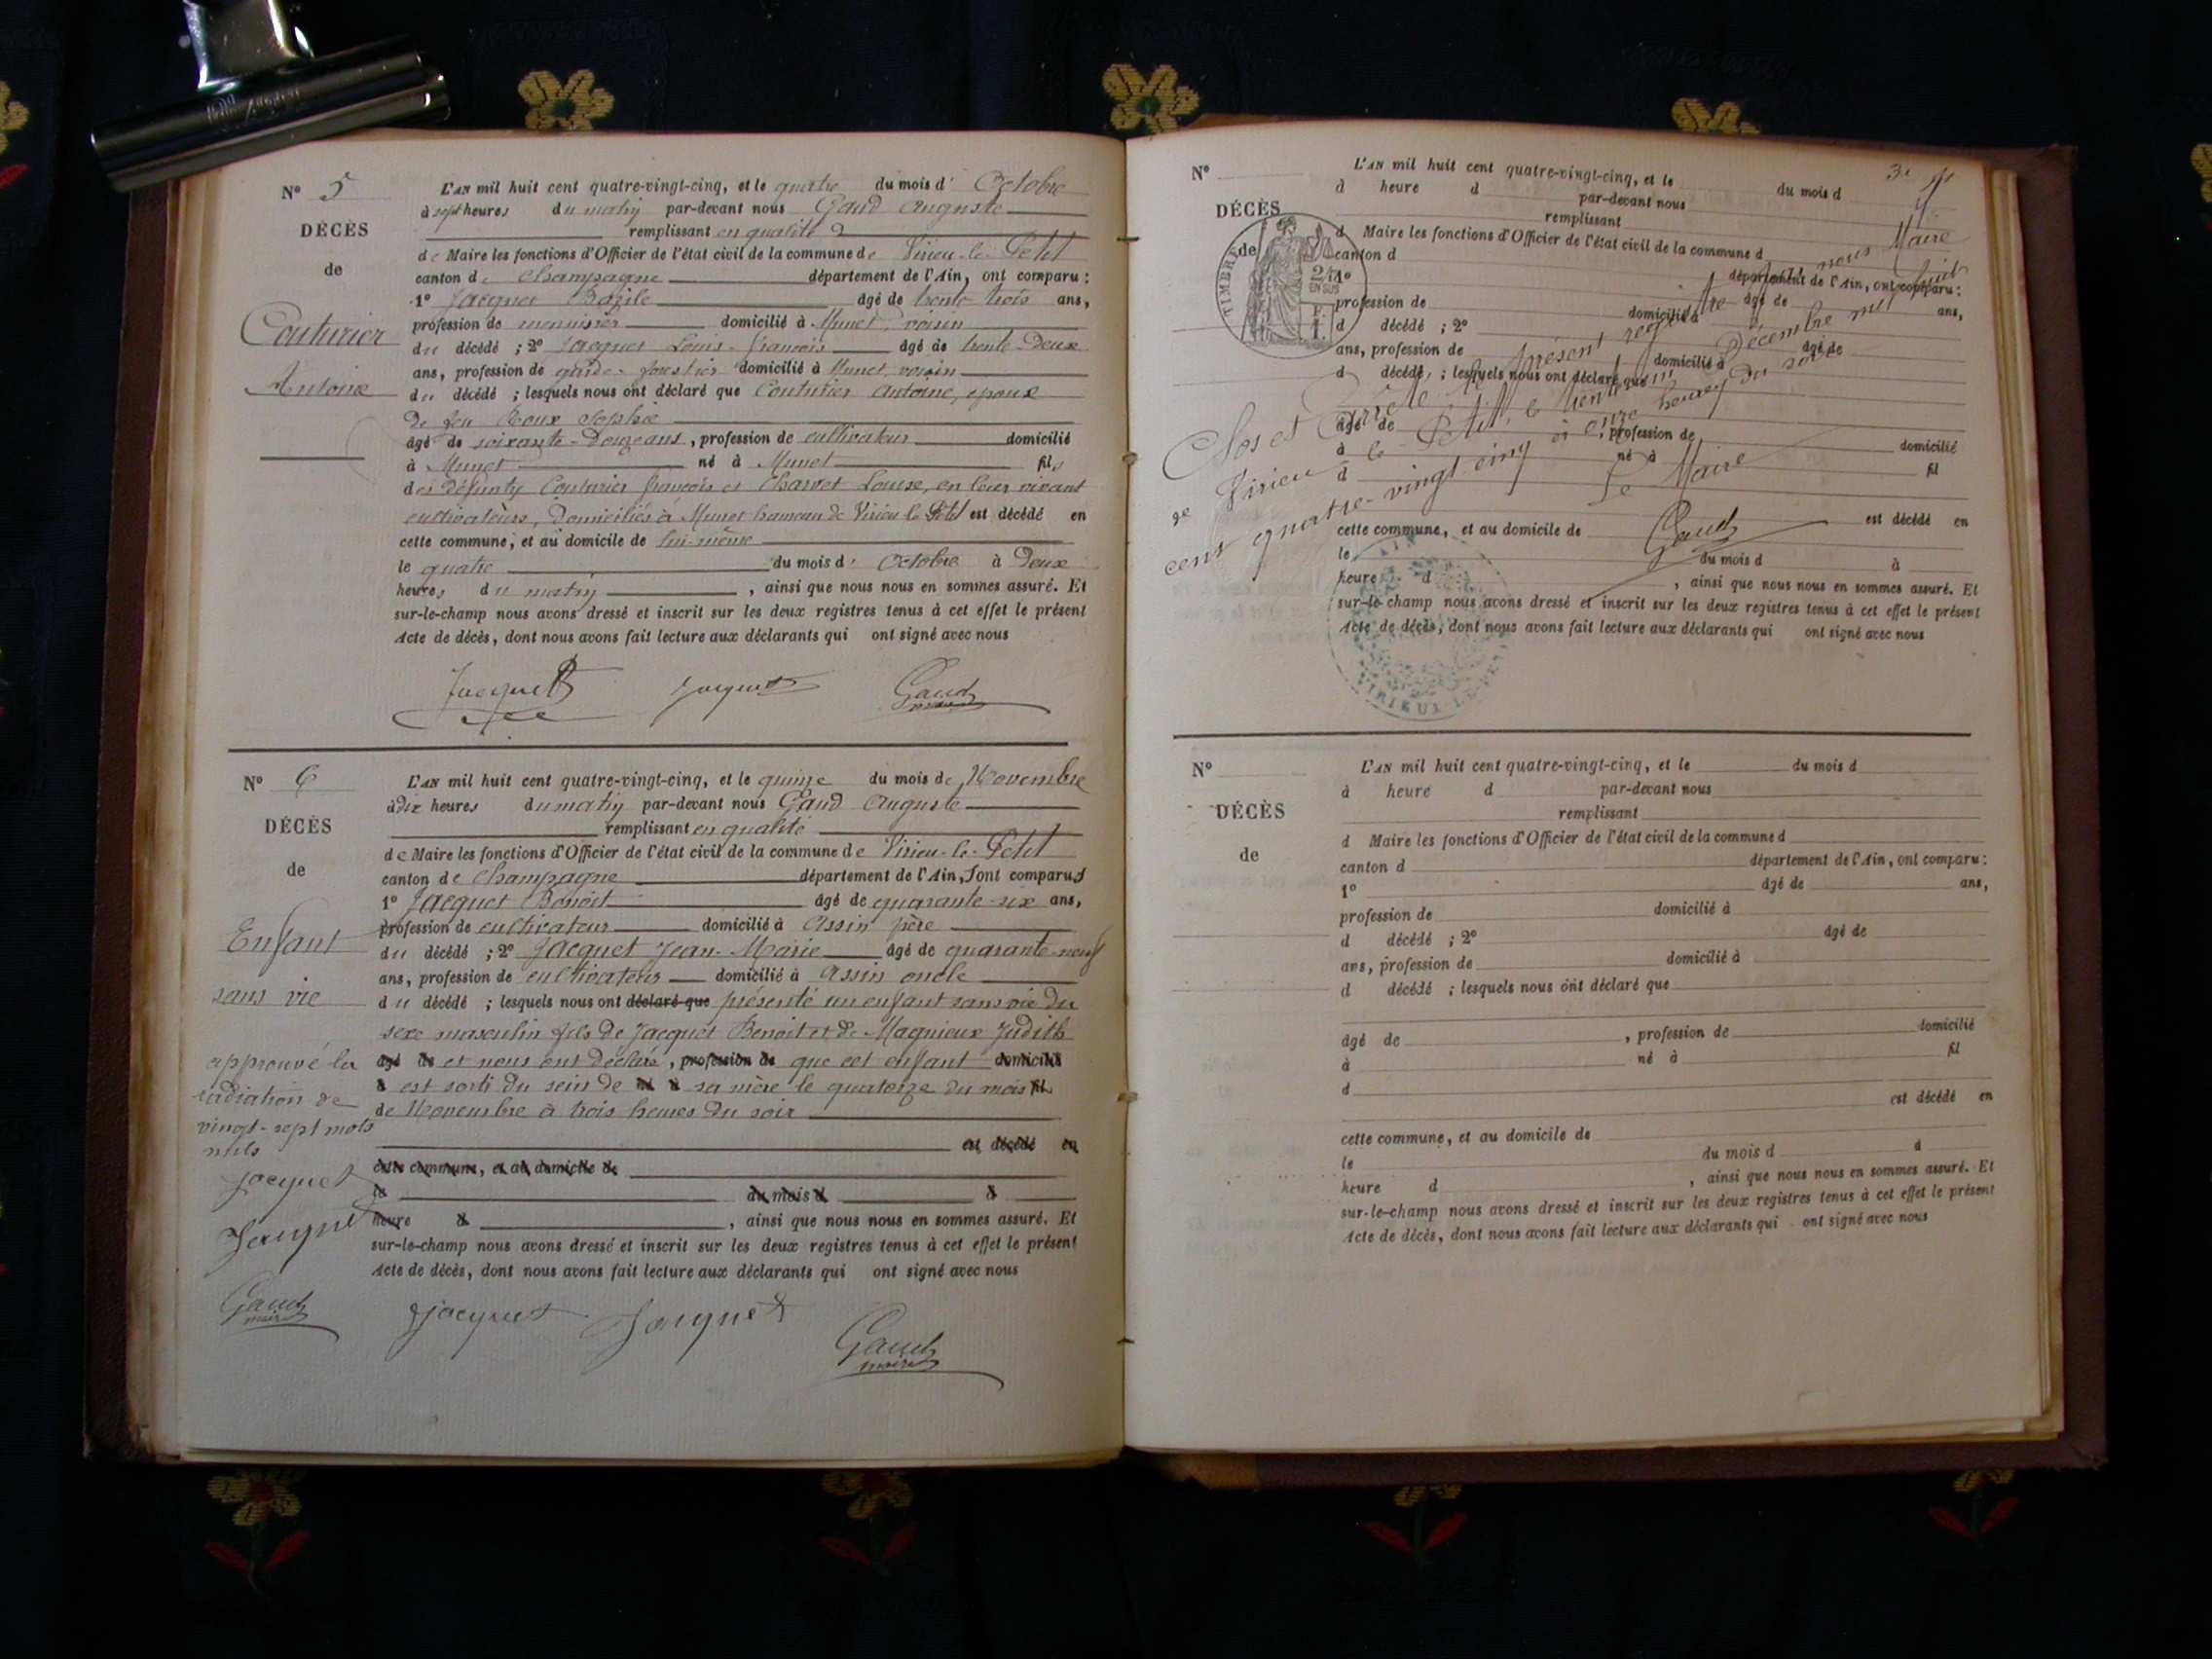 N° 5
DÉCÈS
de
Couturier
Antoine
L'AN mil huit cent quatre-vingt-cinq, et le quatre du mois d' Octobre
à sept heures du matin par-devant nous Gaud Auguste
remplissant en qualité
de Maire les fonctions d'Officier de l'état civil de la commune de Virieu-le-Petit
canton de Champagne département de l'Ain, ont comparu :
1° Jacquet Bazile âgé de trente-trois ans,
profession de menuisier domicilié à Munet, voisin
du décédé ; 2° Jacquet Louis-françois âgé de trente-deux
ans, profession de garde-forestier domicilié à Munet, voisin
du décédé ; lesquels nous ont déclaré que Couturier Antoine, époux
de feu Roux Sophie
âgé de soixante-douze ans, profession de cultivateur domicilié
à Munet né à Munet fils
des défunts Couturier françois et Charvet Louise, en leur vivant
cultivateurs, domiciliés à Munet hameau de Virieu-le-Petit est décédé en
cette commune, et au domicile de lui-même
le quatre du mois d' Octobre à Deux
heures du matin , ainsi que nous nous en sommes assuré. Et
sur-le-champ nous avons dressé et inscrit sur les deux registres tenus à cet effet le présent
Acte de décès, dont nous avons fait lecture aux déclarants qui ont signé avec nous
Jacquet Jacquet Gaud
maire
N° 6
DÉCÈS
de
Enfant
sans vie
approuvé la
radiation de
vingt-sept mots
nuls
Jacquet
Jacquet
Gaud
maire
L'AN mil huit cent quatre-vingt-cinq, et le quinze du mois de Novembre
à dix heures du matin par-devant nous Gaud Auguste
remplissant en qualité
de Maire les fonctions d'Officier de l'état civil de la commune de Virieu-le-Petit
canton de Champagne département de l'Ain, sont comparus
1° Jacquet Benoit âgé de quarante-six ans,
profession de cultivateur domicilié à Assin père
du décédé ; 2° Jacquet Jean-Marie âgé de quarante-neuf
ans, profession de cultivateur domicilié à Assin oncle
du décédé ; lesquels nous ont déclaré que présenté un enfant sans vie du
sexe masculin fils de Jacquet Benoit et de Magnieux Judith
âgé de et nous ont déclaré , profession de que cet enfant domicilié
à est sorti du sein de né à sa mère le quatorze du mois fil
de Novembre à trois heures du soir
est décédé en
cette commune, et au domicile de
le du mois d à
heure d , ainsi que nous nous en sommes assuré. Et
sur-le-champ nous avons dressé et inscrit sur les deux registres tenus à cet effet le présent
Acte de décès, dont nous avons fait lecture aux déclarants qui ont signé avec nous
Jacquet Jacquet Gaud
maire
N°
DÉCÈS
de
TIMBRE
EN SUS
L'AN mil huit cent quatre-vingt-cinq, et le du mois d
à heure d par-devant nous
remplissant
d Maire les fonctions d'Officier de l'état civil de la commune d
canton d département de l'Ain, ont comparu :
1° âgé de ans,
profession de domicilié à
d décédé ; 2° âgé de
ans, profession de domicilié à
d décédé ; lesquels nous ont déclaré que
âgé de , profession de domicilié
à né à fil
d
est décédé en
cette commune, et au domicile de
le du mois d à
heure d , ainsi que nous nous en sommes assuré. Et
sur-le-champ nous avons dressé et inscrit sur les deux registres tenus à cet effet le présent
Acte de décès, dont nous avons fait lecture aux déclarants qui ont signé avec nous
Clos et Arrêté le présent registre par nous Maire
de Virieu le Petit, le trente un Décembre mil huit
cent quatre-vingt cinq à onze heures du soir
Le Maire
Gaud
AIN
VIRIEU LE
N°
DÉCÈS
de
L'AN mil huit cent quatre-vingt-cinq, et le du mois d
à heure d par-devant nous
remplissant
d Maire les fonctions d'Officier de l'état civil de la commune d
canton d département de l'Ain, ont comparu :
1° âgé de ans,
profession de domicilié à
d décédé ; 2° âgé de
ans, profession de domicilié à
d décédé ; lesquels nous ont déclaré que
âgé de , profession de domicilié
à né à fil
d
est décédé en
cette commune, et au domicile de
le du mois d à
heure d , ainsi que nous nous en sommes assuré. Et
sur-le-champ nous avons dressé et inscrit sur les deux registres tenus à cet effet le présent
Acte de décès, dont nous avons fait lecture aux déclarants qui ont signé avec nous